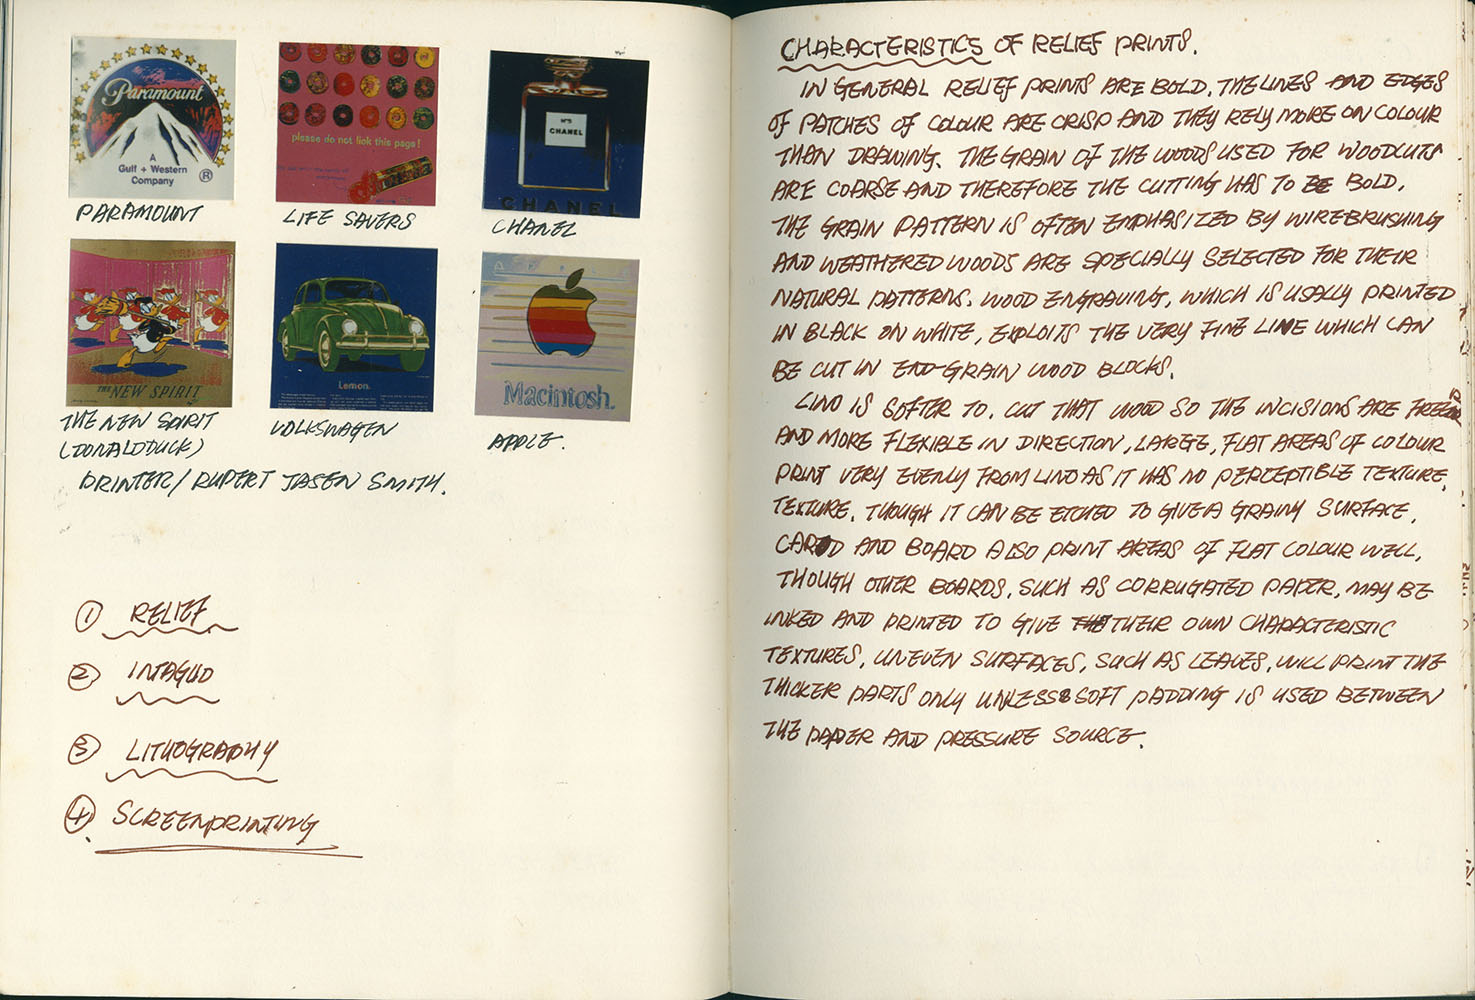 Paramount
A
Gulf + Western
Company ®
PARAMOUNT
please do not lick this page!
LIFE SAVERS
N°5
CHANEL
CHANEL
CHANEL
THE NEW SPIRIT
THE NEW SPIRIT
(DONALD DUCK)
Lemon.
VOLKSWAGEN
APPLE
Macintosh.
APPLE.
PRINTER/ RUPERT JASEN SMITH.
① RELIEF
② INTAGLIO
③ LITHOGRAPHY
④ SCREENPRINTING
CHARACTERISTICS OF RELIEF PRINTS.
IN GENERAL RELIEF PRINTS ARE BOLD. THE LINES AND EDGES
OF PATCHES OF COLOUR ARE CRISP AND THEY RELY MORE ON COLOUR
THAN DRAWING. THE GRAIN OF THE WOODS USED FOR WOODCUTS
ARE COARSE AND THEREFORE THE CUTTING HAS TO BE BOLD.
THE GRAIN PATTERN IS OFTEN EMPHASIZED BY WIREBRUSHING
AND WEATHERED WOODS ARE SPECIALLY SELECTED FOR THEIR
NATURAL PATTERNS. WOOD ENGRAVING, WHICH IS USALLY PRINTED
IN BLACK ON WHITE, EXPLOITS THE VERY FINE LINE WHICH CAN
BE CUT IN END-GRAIN WOOD BLOCKS.
LINO IS SOFTER TO. CUT THAT WOOD SO THE INCISIONS ARE
AND MORE FLEXIBLE IN DIRECTION, LARGE, FLAT AREAS OF COLOUR
PRINT VERY EVENLY FROM LINO AS IT HAS NO PERCEPTIBLE TEXTURE.
TEXTURE. THOUGH IT CAN BE ETCHED TO GIVE A GRAINY SURFACE.
CARD AND BOARD ALSO PRINT AREAS OF FLAT COLOUR WELL,
THOUGH OTHER BOARDS, SUCH AS CORRUGATED PAPER, MAY BE
INKED AND PRINTED TO GIVE THEIR OWN CHARACTERISTIC
TEXTURES, UNEVEN SURFACES, SUCH AS LEAVES, WILL PRINT THE
THICKER PARTS ONLY UNLESS SOFT PADDING IS USED BETWEEN
THE PAPER AND PRESSURE SOURCE.